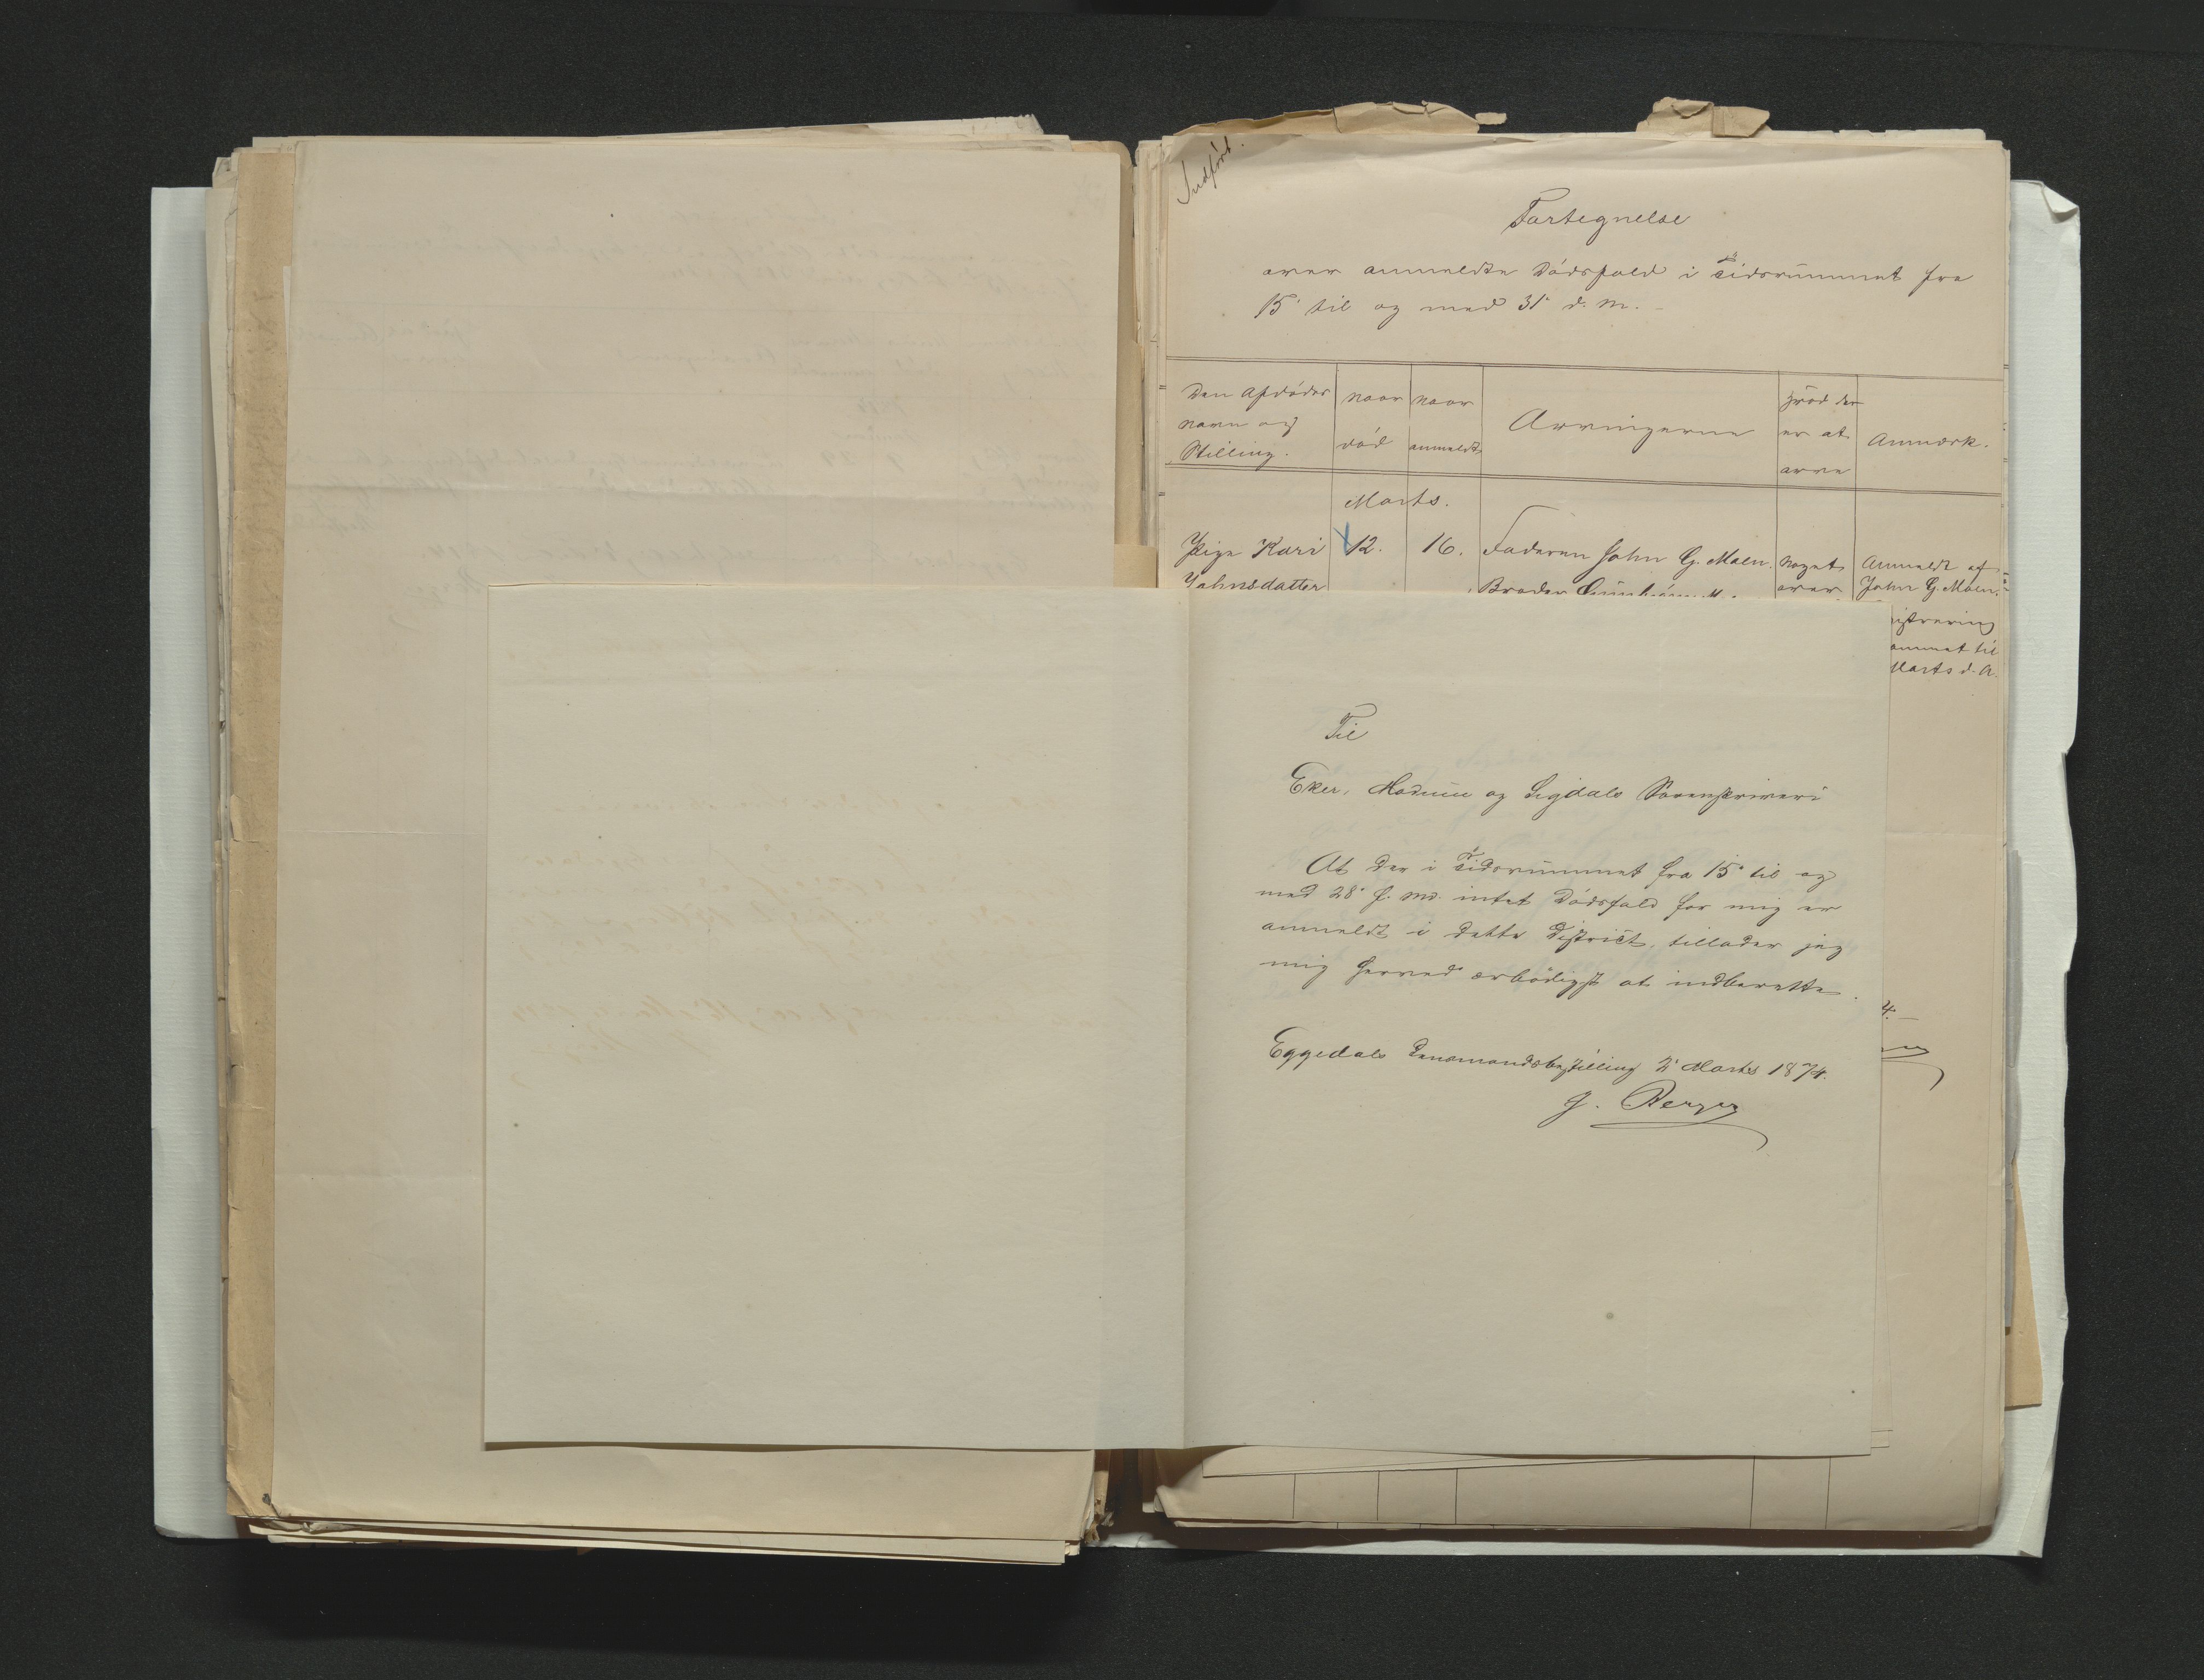 Indført.
Fortegnelse
over anmeldte Dødsfald i Tidsrummet fra
15' til og med 31' d. M.
Den Afdødes
Navn og
Stilling.
Naar
død
Naar
anmeldt
Arvingerne
Hvad der
er at
arve
Anmærk.
Marts.
Pige Kari
Johnsdatter
12.
16.
Faderen John G. Moen.
Broder
Noget
over
Anmeldt af
John G. Moen.
istrering
ommet til
Marts d. A.
4.
Til
Eker, Modum og Sigdals Sorenskriveri
At der i Tidsrummet fra 15' til og
med 28' f. Md. intet Dødsfald for mig er
anmeldt i dette District, tillader jeg
mig herved ærbødigst at indberette.
Eggedals Lensmandsbestilling 2' Marts 1874.